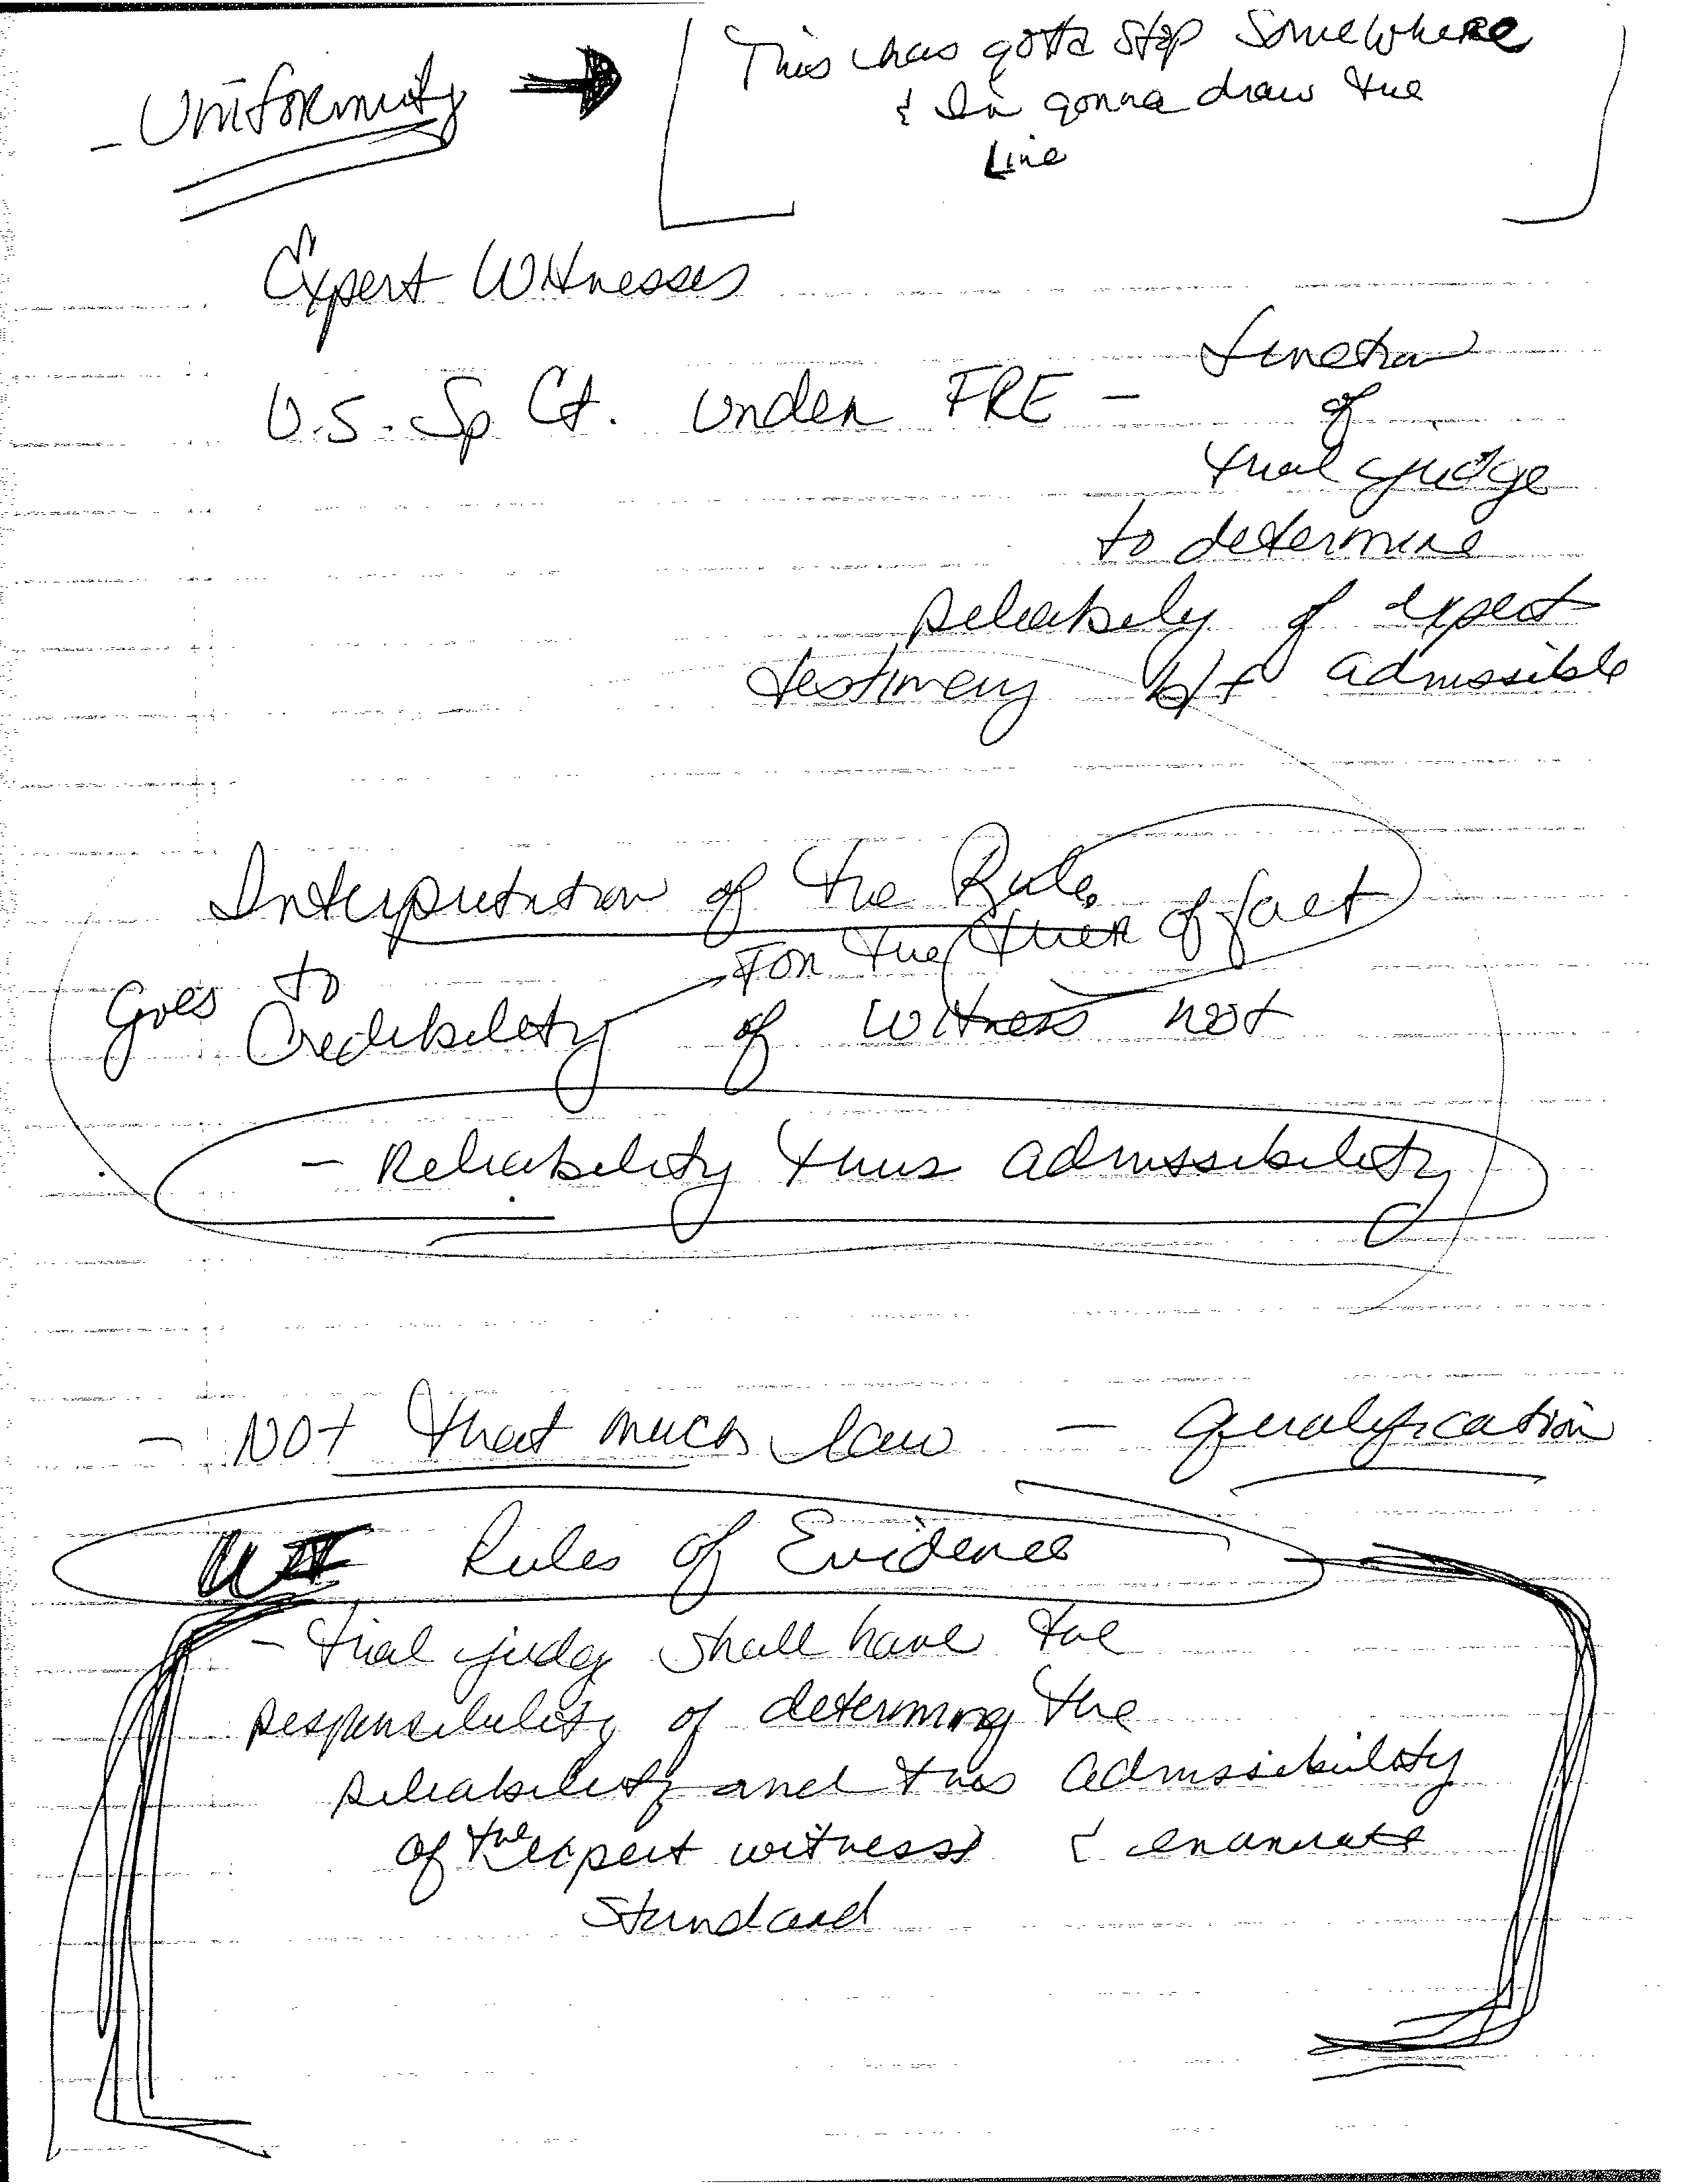 - Uniformity → [ This has gotta stop somewhere
& I'm gonna draw the
Line ]
Expert Witnesses
U.S. Sp Ct. under FRE - function
of
trial judge
to determine
reliabily of expert
testimony b/f admissible
Interpretation of the Rule
For the trier of fact
Goes to
Credibility of witness not
- Reliability thus admissibility
- Not that much law - qualification
Rules of Evidence
- trial judge shall have the
responsibility of determing the
reliability and thus admissibility
of the expert witness & enumrate
standard